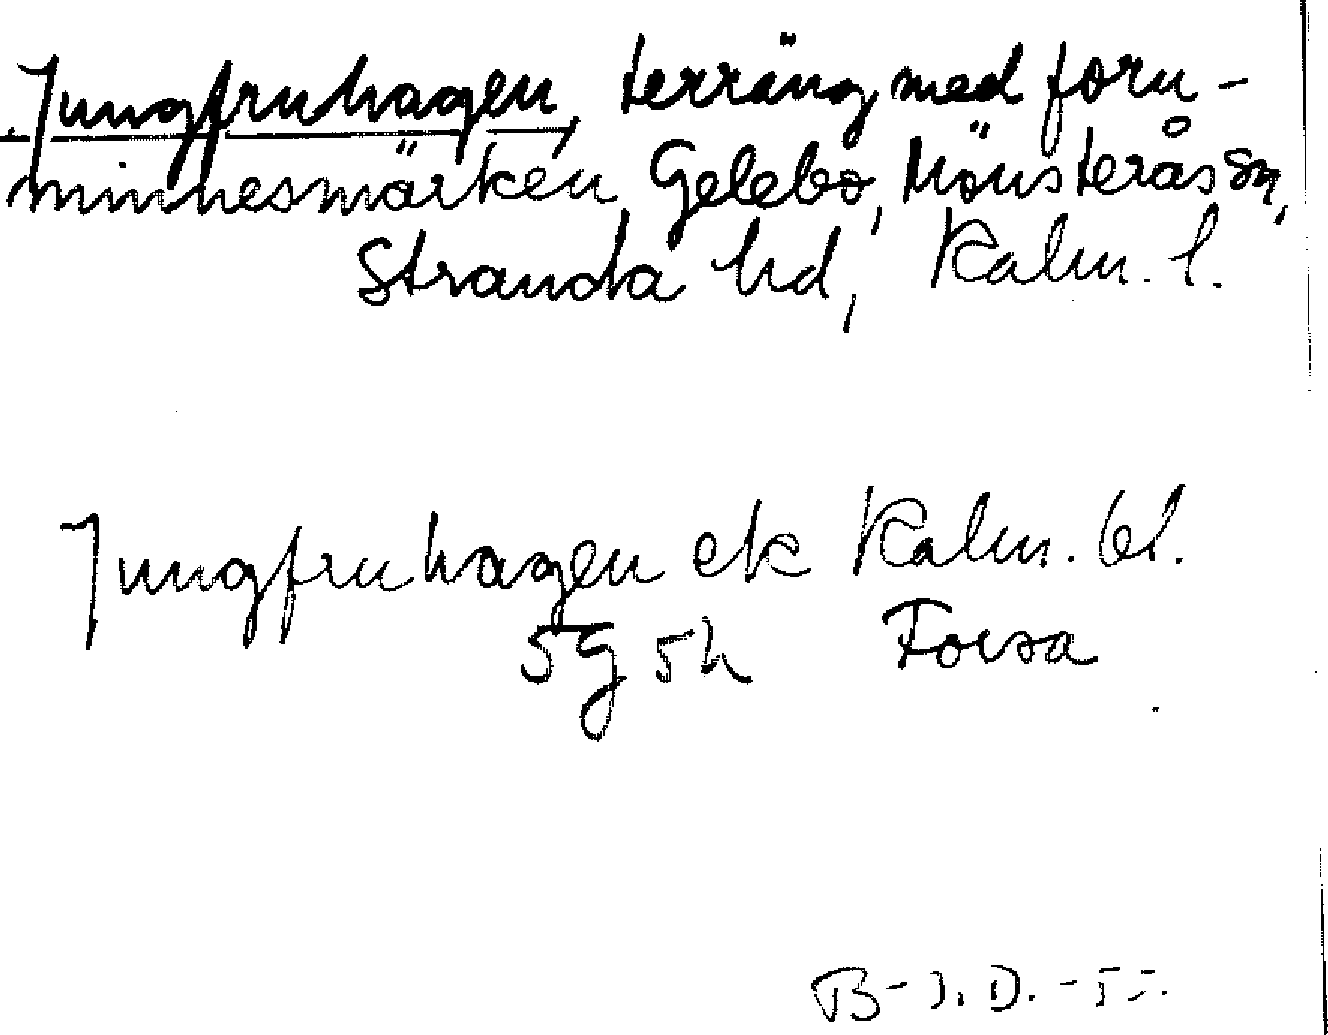 Jungfruhagen, terräng med forn-
minnesmärken, Gelebo, Mönsterås sn,
Stranda hd, Kalm. l.
Jungfruhagen ek Kalm. bl.
5g 5h Forsa
B-J. D. - 55.